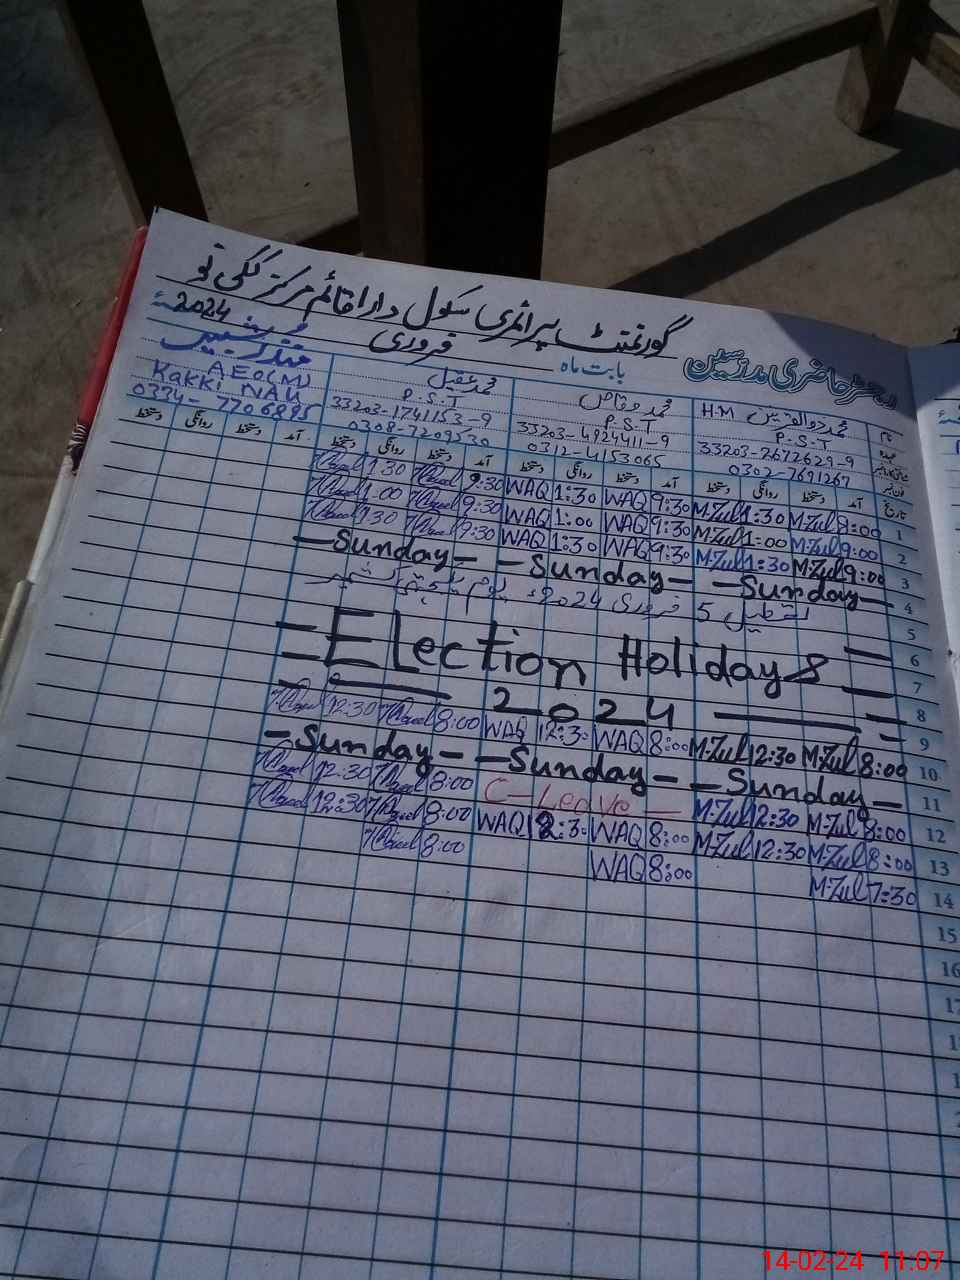 گورنمنٹ پرائمری سکول دارا قائم مرکز ککی نو
رجسٹر حاضری مدرسین بابت ماہ فروری 2024ء
نام محمد ذوالقرنین H.M محمد وقاص محمد عقیل
عہدہ P.S.T P.S.T P.S.T AEO(M)
33203-2672629-9 33203-4924411-9 33203-1741153-9 Kakki NAU
فون نمبر 0302-7691267 0312-4153065 0308-7209230 0334-7706895
تاریخ آمد دستخط روانگی دستخط آمد دستخط روانگی دستخط آمد دستخط روانگی دستخط آمد دستخط روانگی دستخط
1 8:00 M.Zul 1:30 M.Zul 9:30 WAQ 1:30 WAQ 9:30 1:30
2 9:00 M.Zul 1:00 M.Zul 9:30 WAQ 1:00 WAQ 9:30 1:00
3 9:00 M.Zul 1:30 M.Zul 9:30 WAQ 1:30 WAQ 9:30 1:30
4 -Sunday- -Sunday- -Sunday-
5 تعطیل 5 فروری 2024ء یوم یکجہتی کشمیر
6
7 Election Holidays
8 2024
9
10 8:00 M.Zul 12:30 M.Zul 8:00 WAQ 12:30 WAQ 8:00 12:30
11 -Sunday- -Sunday- -Sunday-
12 8:00 M.Zul 12:30 M.Zul C-Leave 8:00 12:30
13 8:00 M.Zul 12:30 M.Zul 8:00 WAQ 12:30 WAQ 8:00 12:30
14 7:30 M.Zul 8:00 WAQ 8:00
15
16
14-02-24 11:07